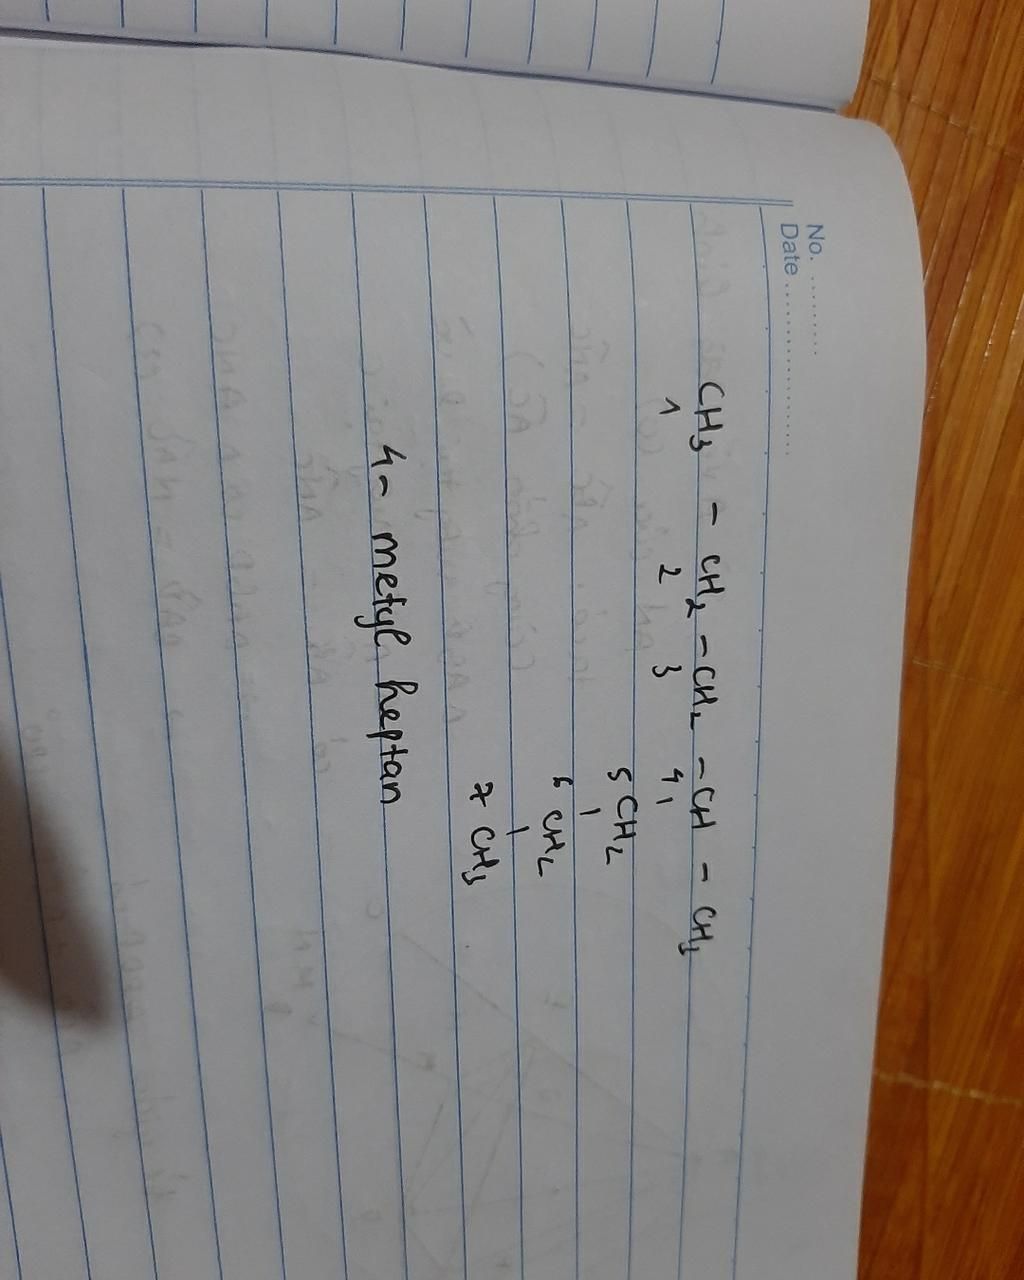 No. ..........
Date ......................
CH3 - CH2 - CH2 - CH - CH3
1 2 3 4 |
5 CH2
|
6 CH2
|
7 CH3
4 - metyl heptan